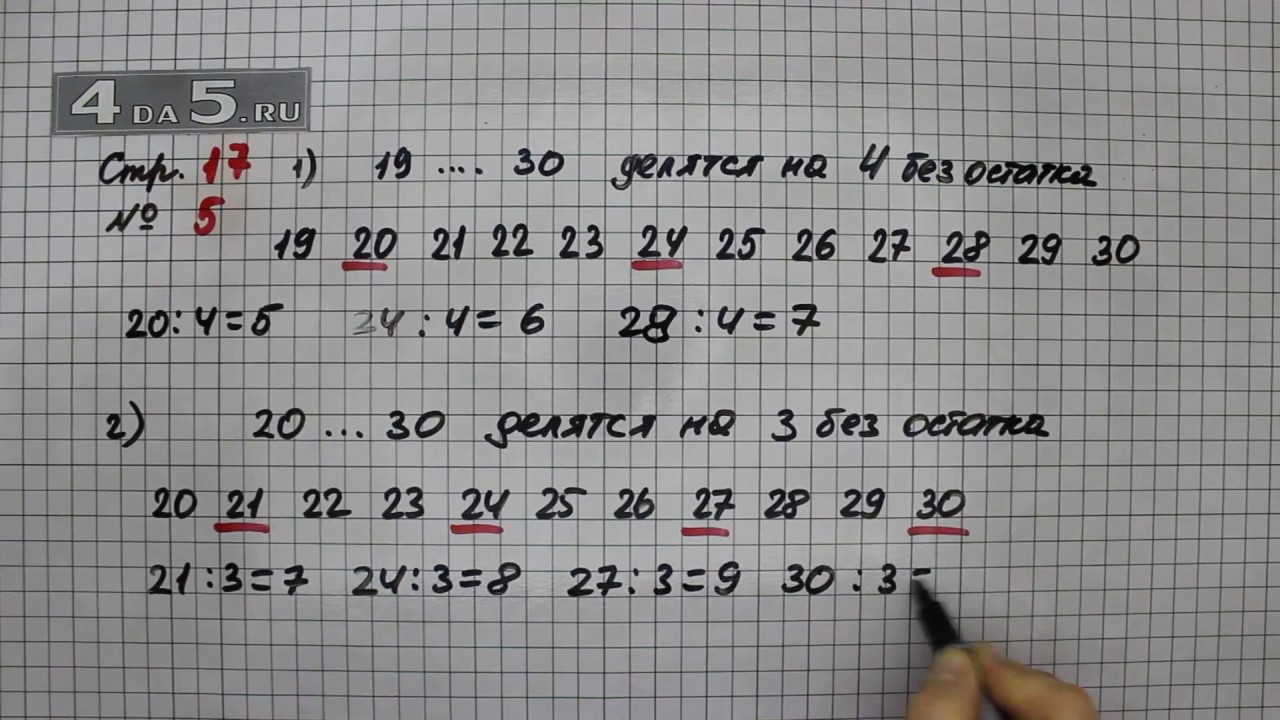 4 DA 5.RU
Стр. 17 1) 19 .... 30 делятся на 4 без остатка
№ 5
19 20 21 22 23 24 25 26 27 28 29 30
20:4=5 24:4=6 28:4=7
2) 20 ... 30 делятся на 3 без остатка
20 21 22 23 24 25 26 27 28 29 30
21:3=7 24:3=8 27:3=9 30:3=